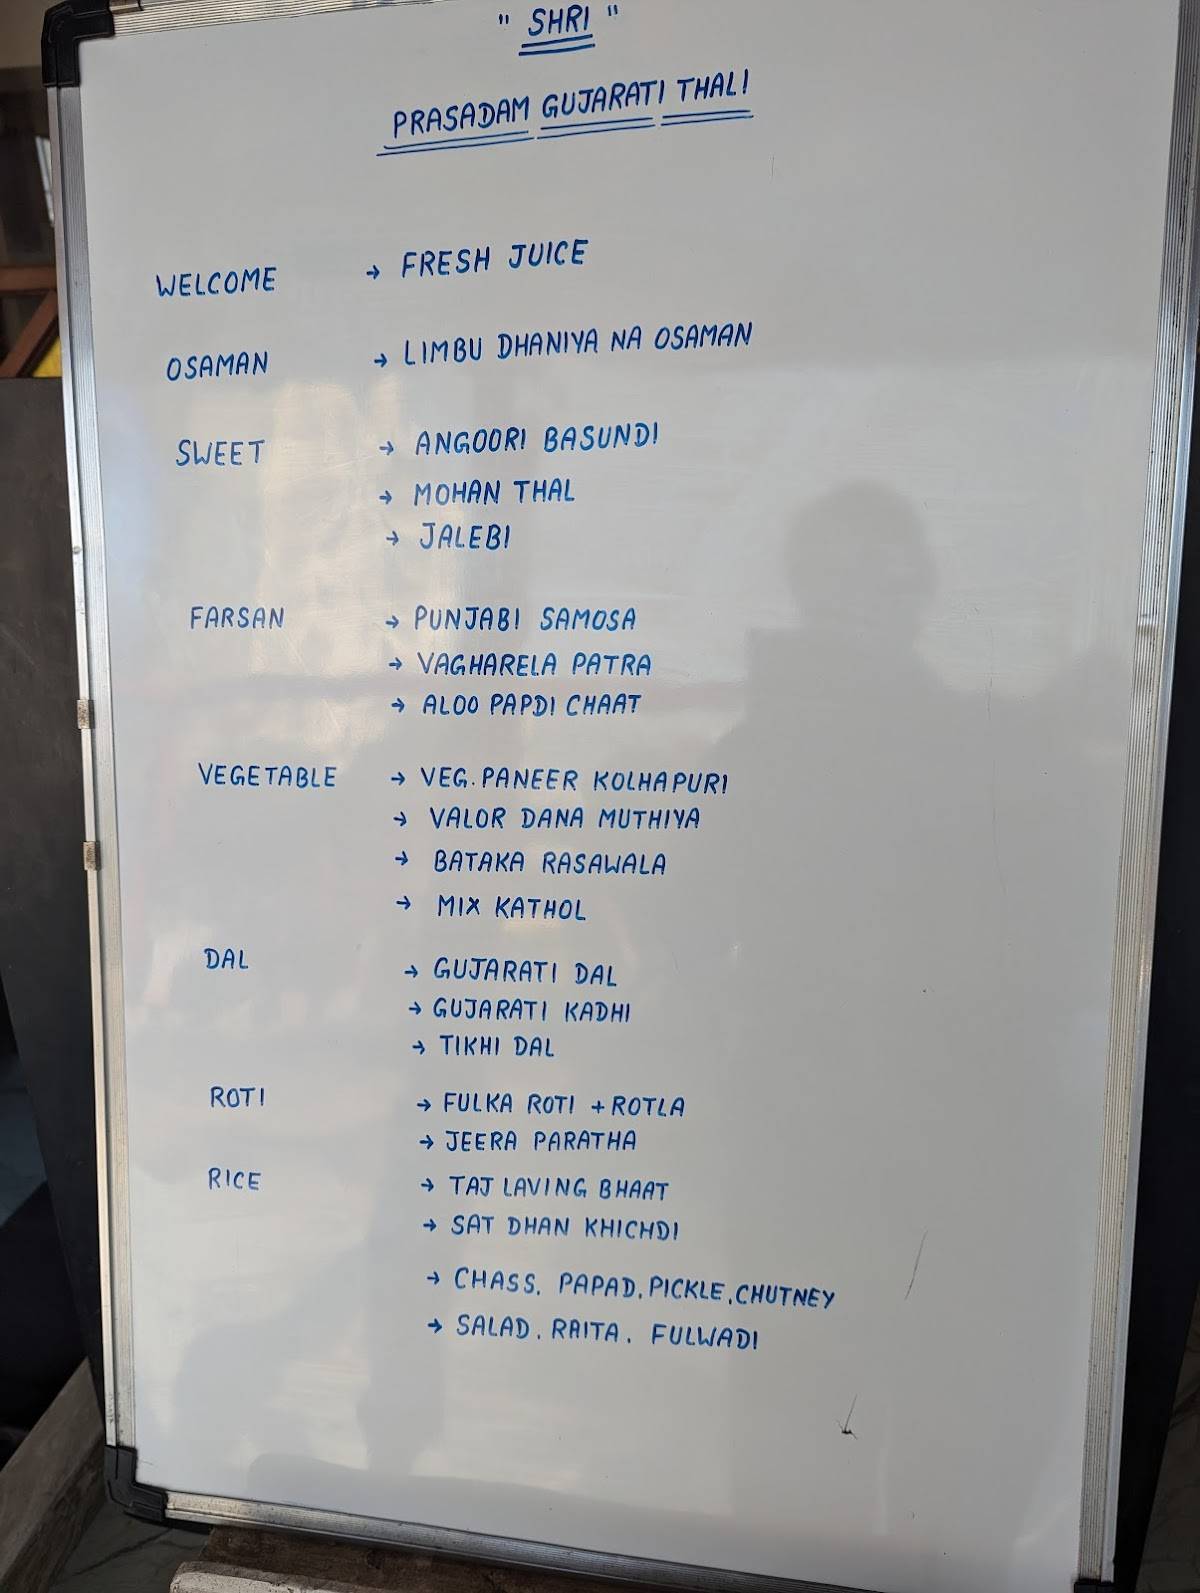 " SHRI "
PRASADAM GUJARATI THALI
WELCOME → FRESH JUICE
OSAMAN → LIMBU DHANIYA NA OSAMAN
SWEET → ANGOORI BASUNDI
→ MOHAN THAL
→ JALEBI
FARSAN → PUNJABI SAMOSA
→ VAGHARELA PATRA
→ ALOO PAPDI CHAAT
VEGETABLE → VEG. PANEER KOLHAPURI
→ VALOR DANA MUTHIYA
→ BATAKA RASAWALA
→ MIX KATHOL
DAL → GUJARATI DAL
→ GUJARATI KADHI
→ TIKHI DAL
ROTI → FULKA ROTI + ROTLA
→ JEERA PARATHA
RICE → TAJ LAVING BHAAT
→ SAT DHAN KHICHDI
→ CHASS, PAPAD, PICKLE, CHUTNEY
→ SALAD, RAITA, FULWADI